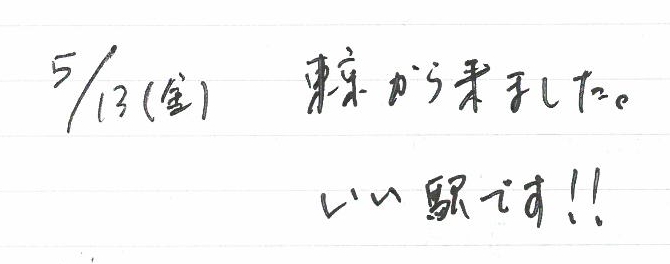 5/13(金) 東京から来ました。
いい駅です!!